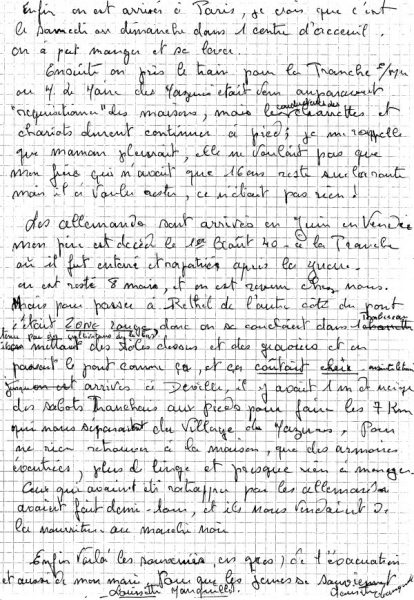 Enfin on est arrivés à Paris, je crois que c'est
le samedi ou dimanche dans 1 centre d'acceuil.
on a put manger et se laver.
Ensuite on pris le train pour la Tranche s/mer
ou M. le Maire des Mazures était venu auparavant
"requisitionner" des maisons, mais les conducteurs des charrettes et
chariots durent continuer à pied; je me rappelle
que maman pleurait, elle ne voulait pas que
mon frère qui n'avait que 16 ans reste sur la route
mais il a voulu rester, ce n'était pas rien!
Les allemands sont arrivés en Juin en Vendée
mon père est décédé le 1er Août 40 - à la Tranche
où il fut enterré et rapatrié après la guerre.
on est resté 8 mois, et on est revenu chez nous.
Mais pour passer à Rethel de l'autre coté du pont
c'était ZONE rouge, donc on se couchait dans 1 tombereau
tenu par des cultivateurs
mettant des toles dessus et des graviers et on
passait le pont comme ça, et ças coûtait cher
on est arrivés à Deville, il y avait 1 m de neige
des sabots Tranchens aux pieds pour faire les 7 Km
qui nous séparait du village des Mazures. Pour
ne rien retrouver à la maison, que des armoires
éventrées, plus de linge et presque rien à manger.
Ceux qui avaient été rattrapés par les allemands
avaient fait demi-tour, et ils nous vendaient de
la nourriture au marché noir
Enfin voilà les souvenirs, en gros, de l'évacuation
et aussi de mon mari. Pour que les jeunes se souviennent